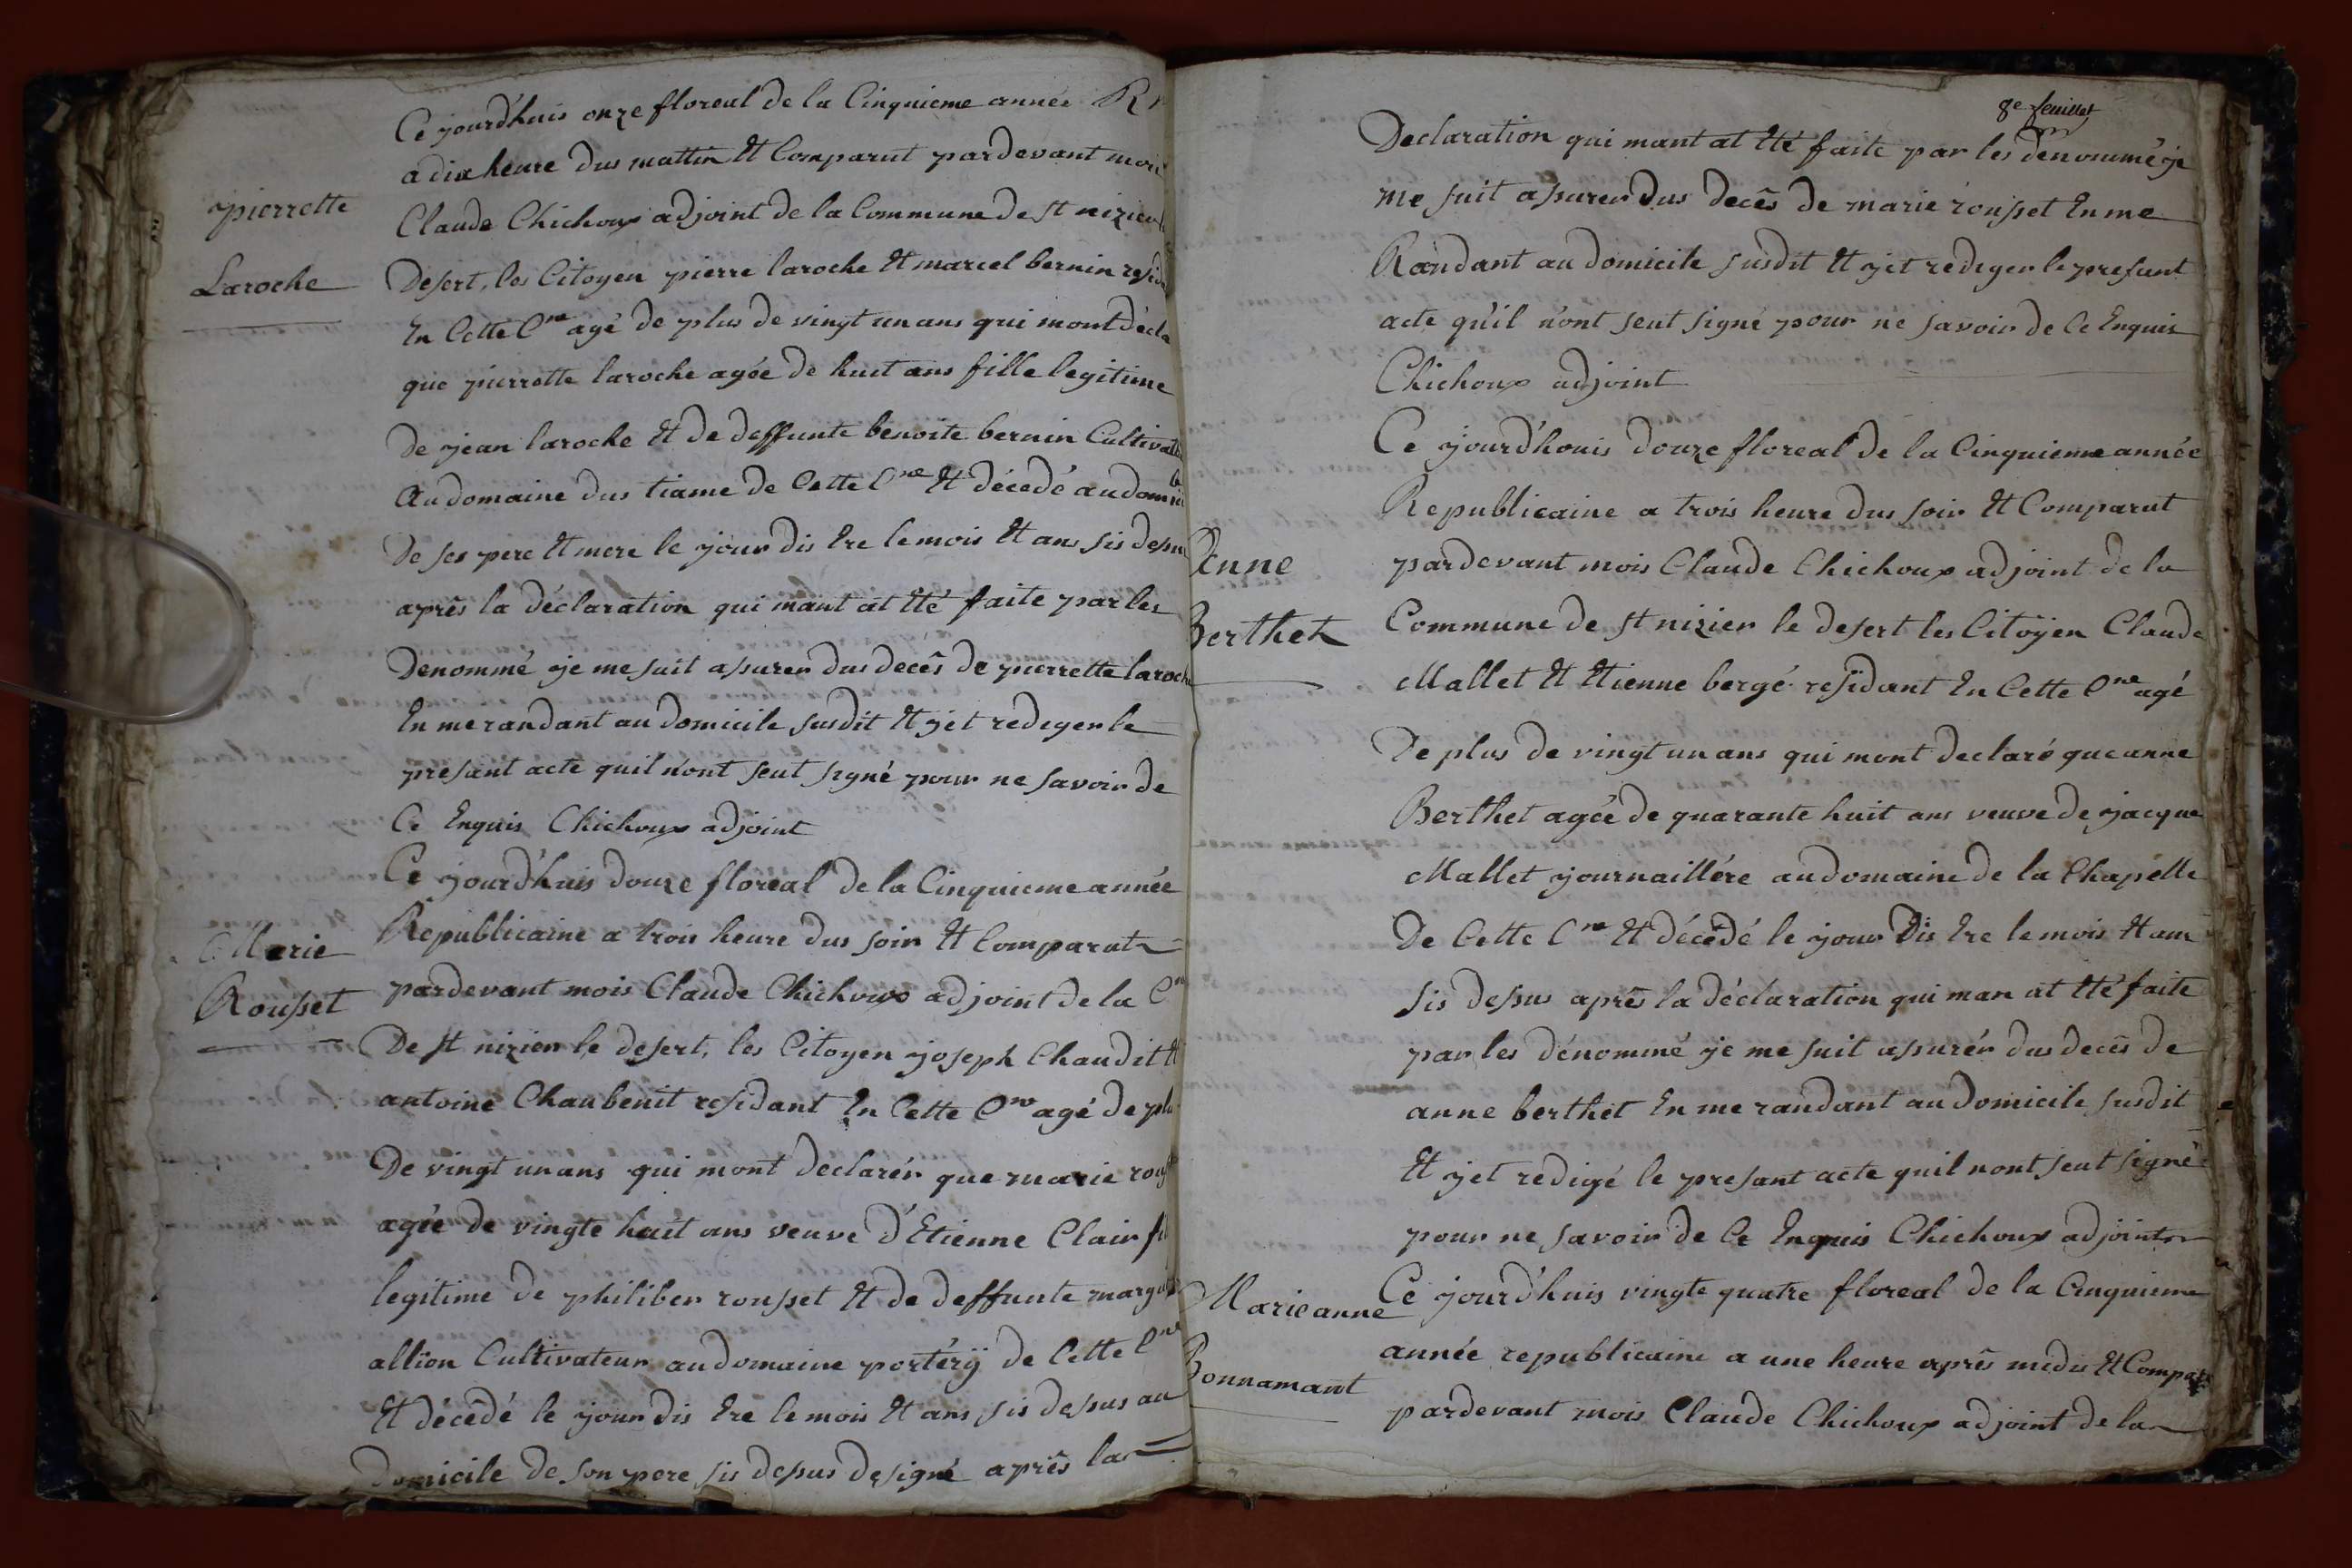 pierrette
Laroche
Ce jourd'huis onze floreal de la Cinquieme année R
a dix heure dus mattin Et Comparut pardevant mois
Claude Chichoux adjoint de la Commune de st nizier
Desert, les Citoyen pierre laroche Et marcel bernin resid
En Cette Cne agé de plus de vingt un ans qui mont décla
que pierrette laroche agée de huit ans fille legitime
De jean laroche Et de deffunte benoite bernin Cultivat
Au domaine dus tiame de Cette Cne Et décedé au domic
De ses pere Et mere le jour dis Ere le mois Et ans sis desu
après la déclaration qui mant at Eté faite par les
Denommé je me suit assurer dus decês de pierrette laroche
En me randant au domicile susdit Et jet rediger le
presant acte quil n'ont seut signé pour ne savoir de
Ce Enquis Chichoux adjoint
Marie
Rousset
Ce jourd'huis douze floreal de la Cinquieme année
Republicaine a trois heure dus soir Et Comparut
pardevant mois Claude Chichoux adjoint de la Cne
De st nizier le desert, les Citoyen joseph Chaudit Et
antoine Chaubenit residant En Cette Cne agé de plu
De vingt un ans qui mont declarér que marie rouss
agée de vingte huit ans veuve d'Etienne Clair fil
legitime de philiber rousset Et de deffunte margu
allion Cultivateur au domaine portérÿ de Cette Cne
Et décêdé le jour dis Ere le mois Et ans sis desus au
Domicile de son pere sis desus designé après la
8e feuillet
Declaration qui mant at Eté faite par les denommé je
me suit assurer dus decês de marie rousset En me
Randant au domicile susdit Et jet rediger le presant
acte qu'il n'ont seut signé pour ne savoir de Ce Enquis
Chichoux adjoint
Anne
Berthet
Ce jourd'houis douze floreal de la Cinquieme année
Republicaine a trois heure dus soir Et Comparut
pardevant mois Claude Chichoux adjoint de la
Commune de st nizier le desert les Citoÿen Claude
Mallet Et Etienne bergé resïdant En Cette Cne agé
De plus de vingt un ans qui mont declaré que anne
Berthet agée de quarante huit ans veuve de jacque
Mallet journaillére au domaine de la Chapelle
De Cette Cne Et décêdé le jour Dis Ere le mois Et ans
sis desus après la déclaration qui man at Eté faite
par les dénommé je me suit assurér dus decês de
anne berthet En me randant au domicile susdit
Et jet redigé le presant acte quil nont seut signé
pour ne savoir de Ce Enquis Chichoux adjoint
Marie anne
Bonnamant
Ce jourd'huis vingte quatre floreal de la Cinquieme
année republicaine a une heure après midis Et Compar
pardevant mois Claude Chichoux adjoint de la